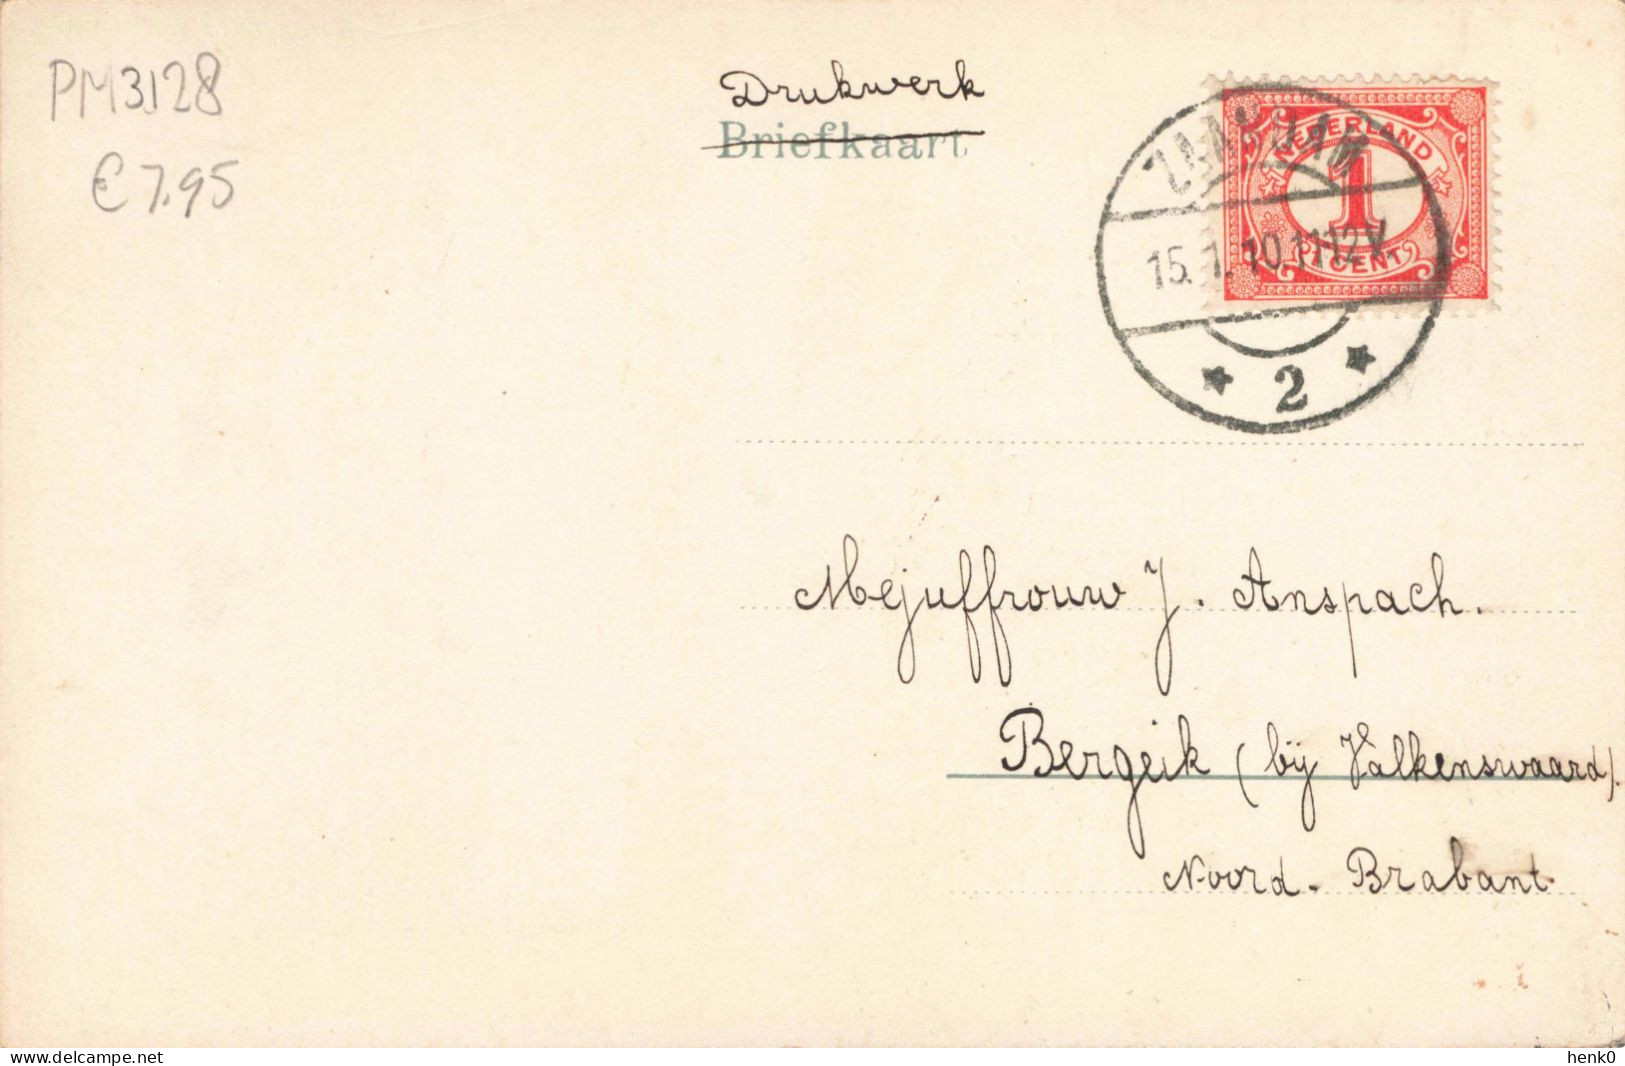 PM3128
€ 7.95
Drukwerk
Briefkaart
NEDERLAND
1
CENT
ZAANDAM
15.1.10.1112V.
2
Mejuffrouw J. Anspach.
Bergeik (bij Valkenswaard).
Noord-Brabant.
www.delcampe.net
henk0